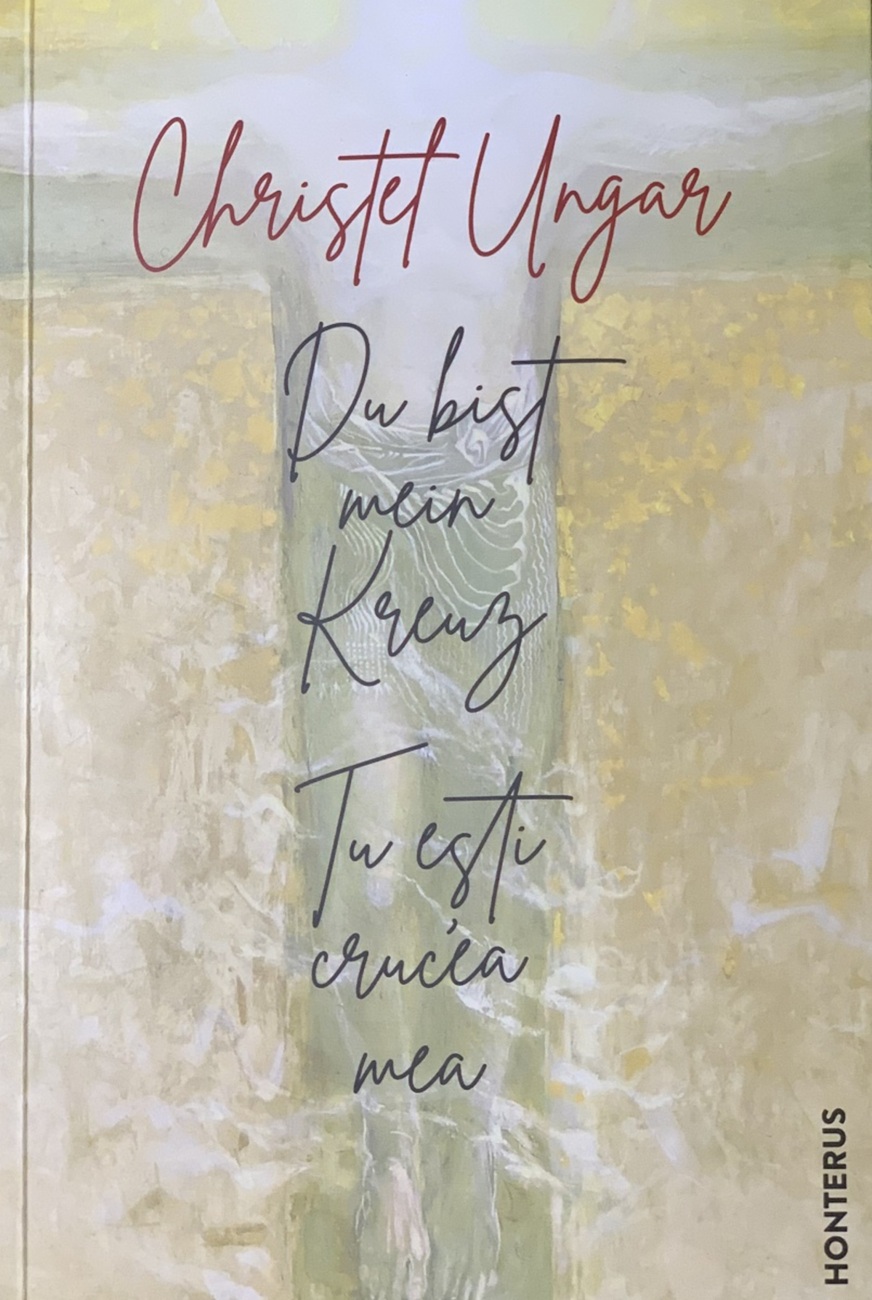 Christel Ungar
Du bist
mein
Kreuz
Tu ești
crucea
mea
HONTERUS